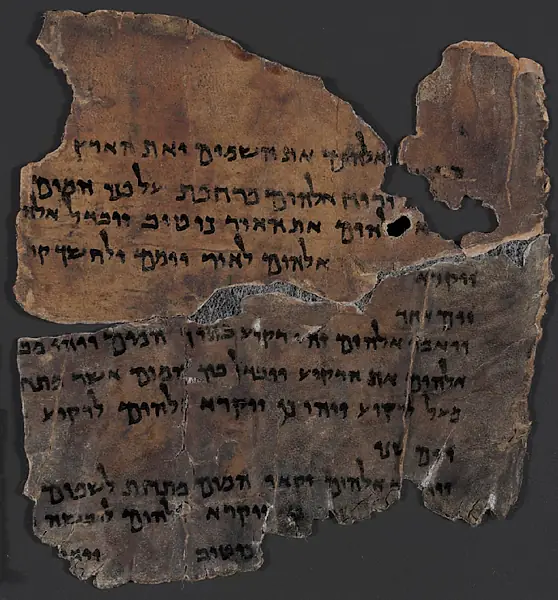 אלהים את השמים ואת הארץ
ורוח אלהים מרחפת על פני המים
אלהים את האור כי טוב ויבדל אלה
אלהים לאור יומם ולחשך קר
יום אחד
ויאמר אלהים יהי רקיע בתוך המים ויהי מב
אלהים את הרקיע ויבדל בין המים אשר מתח
מעל לרקיע ויהי כן ויקרא אלהים לרקיע
יום שני
אלהים המים מתחת לשמים
כן ויקרא אלהים ליבשה
כי טוב